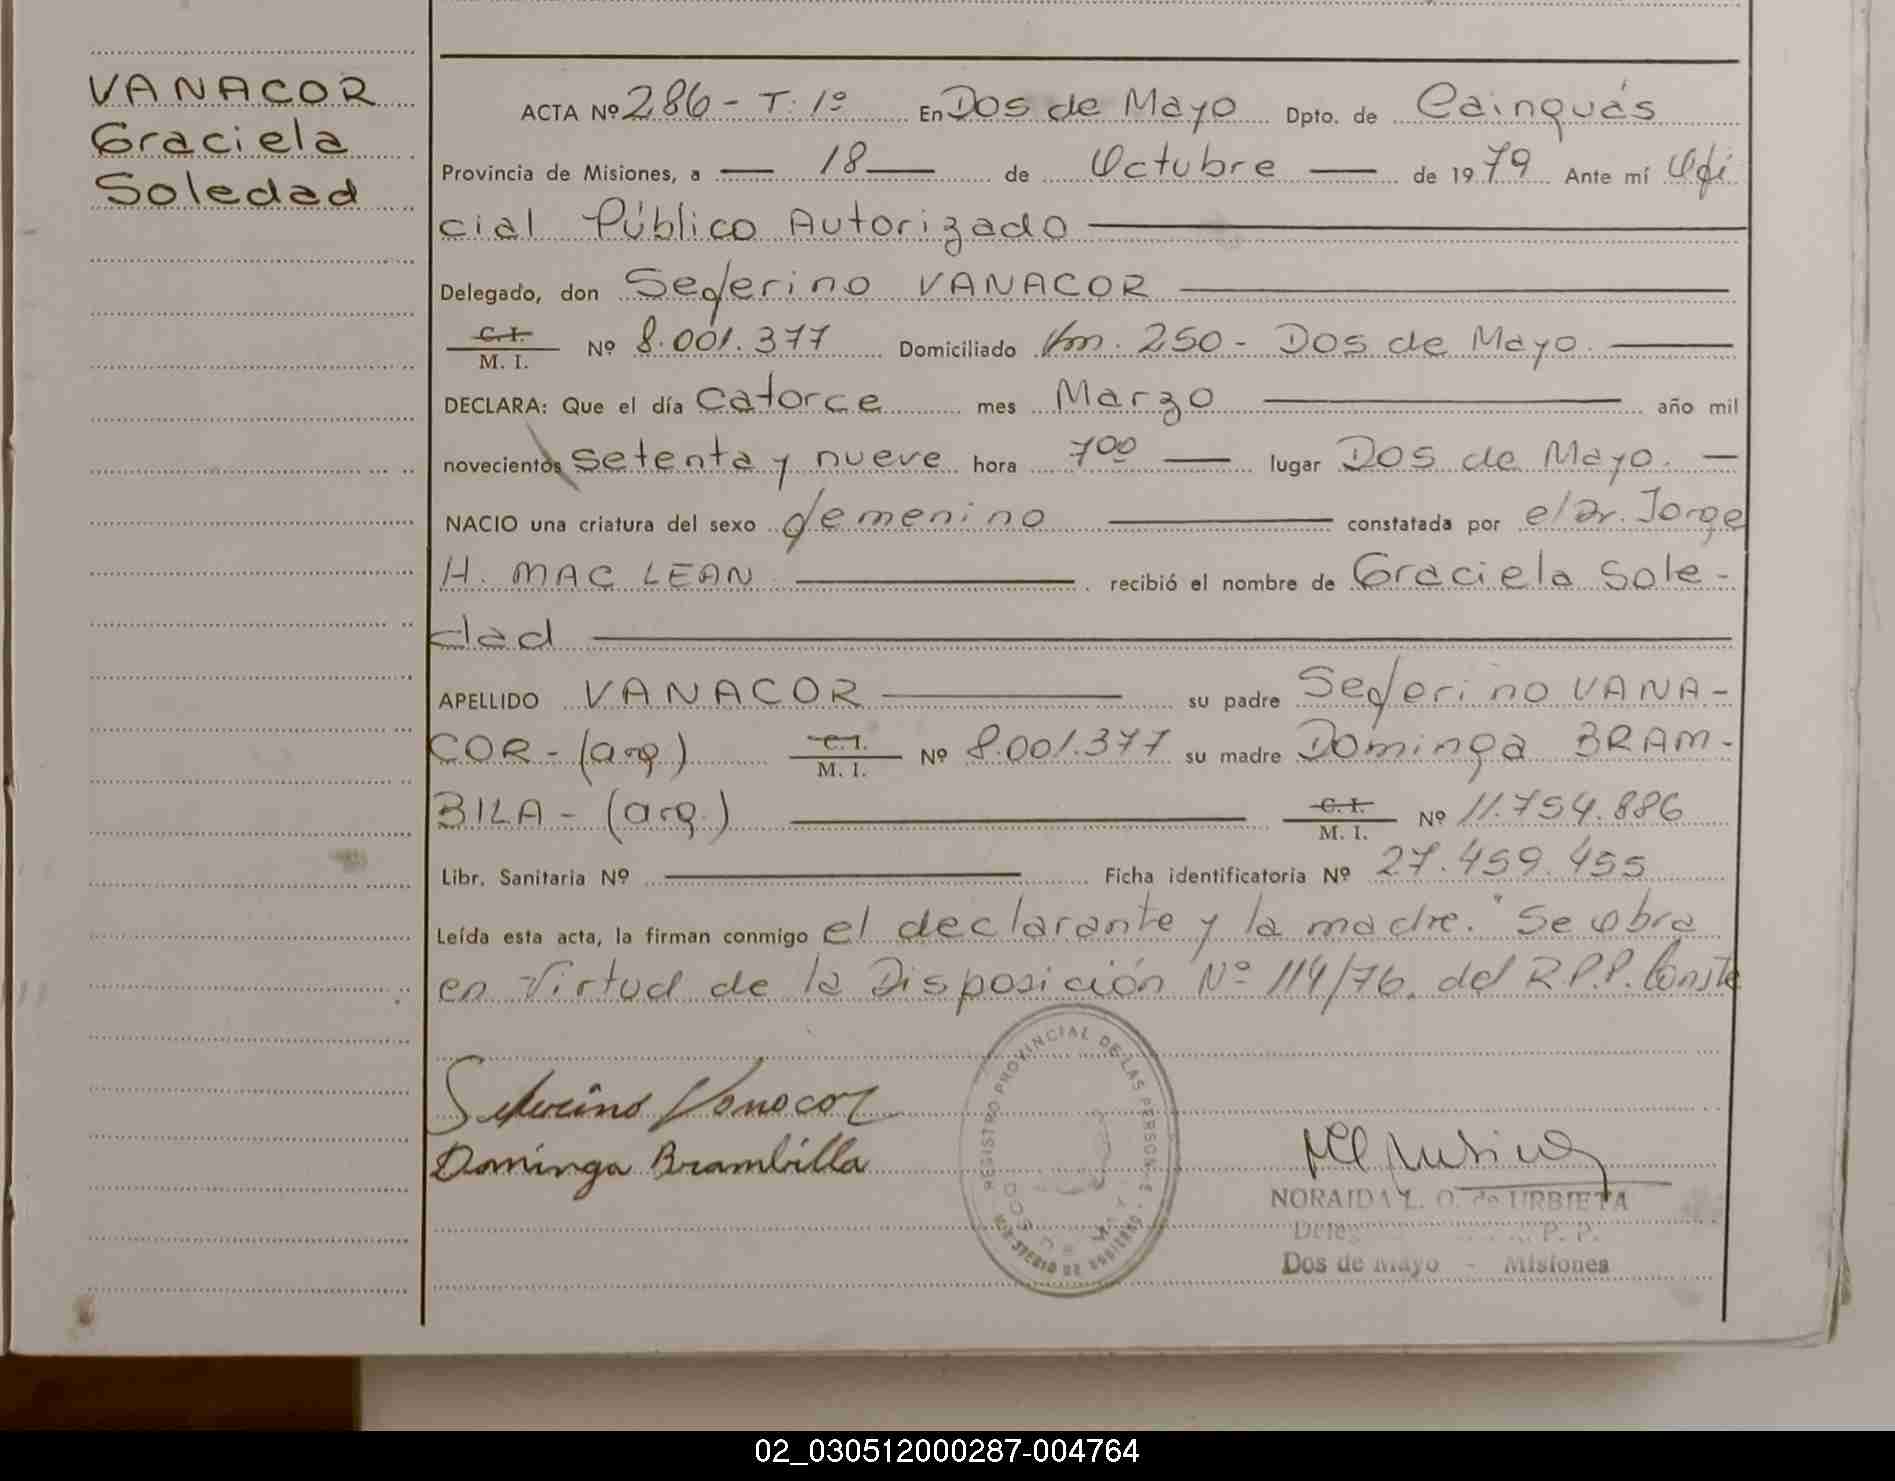 VANACOR
Graciela
Soledad
ACTA Nº 286 - T: 1º En Dos de Mayo Dpto. de Cainguás
Provincia de Misiones, a — 18 — de Octubre — de 1979 Ante mí Ofi
cial Público Autorizado
Delegado, don Seferino VANACOR
C. I. / M. I. Nº 8.001.377 Domiciliado Km. 250 - Dos de Mayo.
DECLARA: Que el día catorce mes Marzo año mil
novecientos setenta y nueve hora 7 00 — lugar Dos de Mayo. —
NACIO una criatura del sexo femenino constatada por el Dr. Jorge
H. MAC LEAN recibió el nombre de Graciela Sole-
dad
APELLIDO VANACOR su padre Seferino VANA-
COR - (arg.) C. I. / M. I. Nº 8.001.377 su madre Dominga BRAM-
BILA - (arg.) C. I. / M. I. Nº 11.754.886
Libr. Sanitaria Nº — Ficha identificatoria Nº 27.459.455
Leída esta acta, la firman conmigo el declarante y la madre. "Se obra
en Virtud de la Disposición Nº 114/76. del R.P.P. Conste
Seferino Vanacor
Dominga Brambilla
REGISTRO PROVINCIAL DE LAS PERSONAS
MINISTERIO DE GOBIERNO
NORAIDA L. O. de URBIETA
P. P.
Dos de Mayo - Misiones
02_030512000287-004764